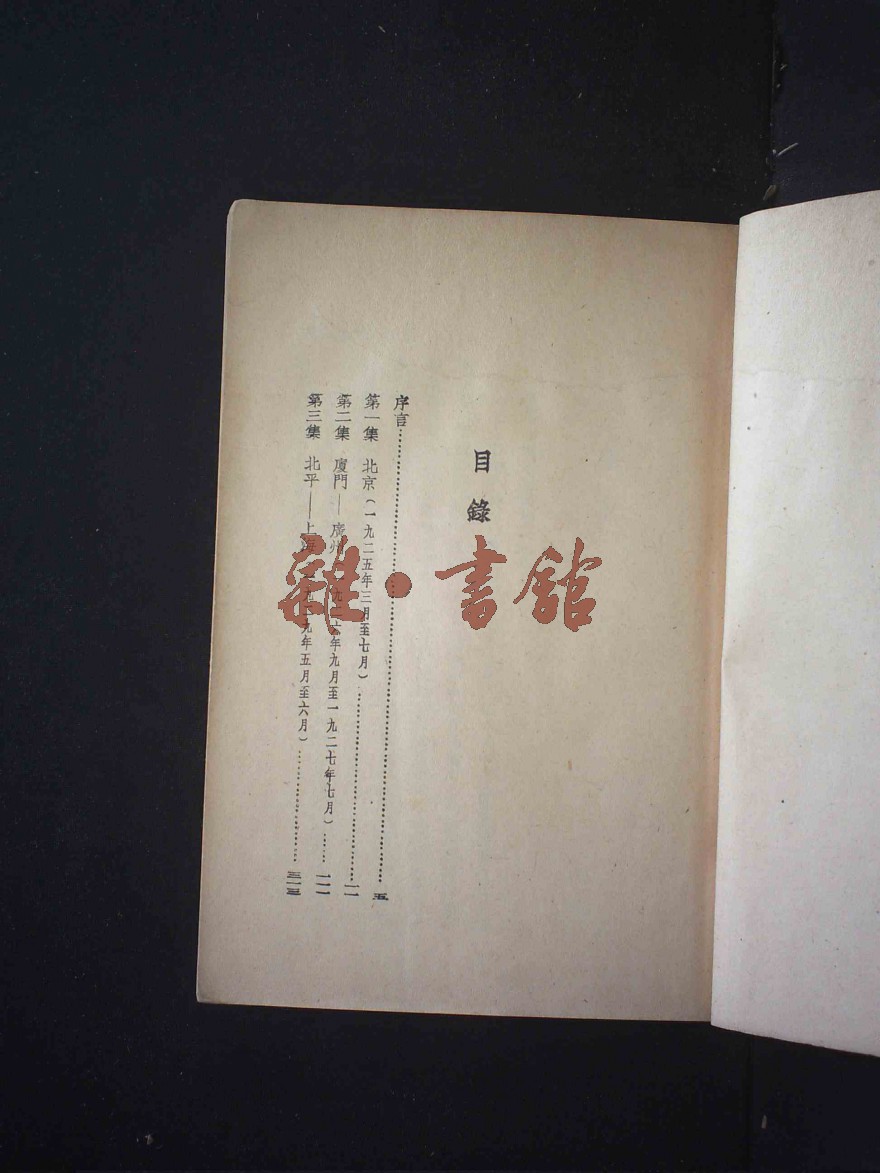 目錄
序言……五
第一集 北京(一九二五年三月至七月)……一一
第二集 廈門——廣州(一九二六年九月至一九二七年七月)……一一一
第三集 北平——上海(一九二九年五月至六月)……三一三
雜·書館